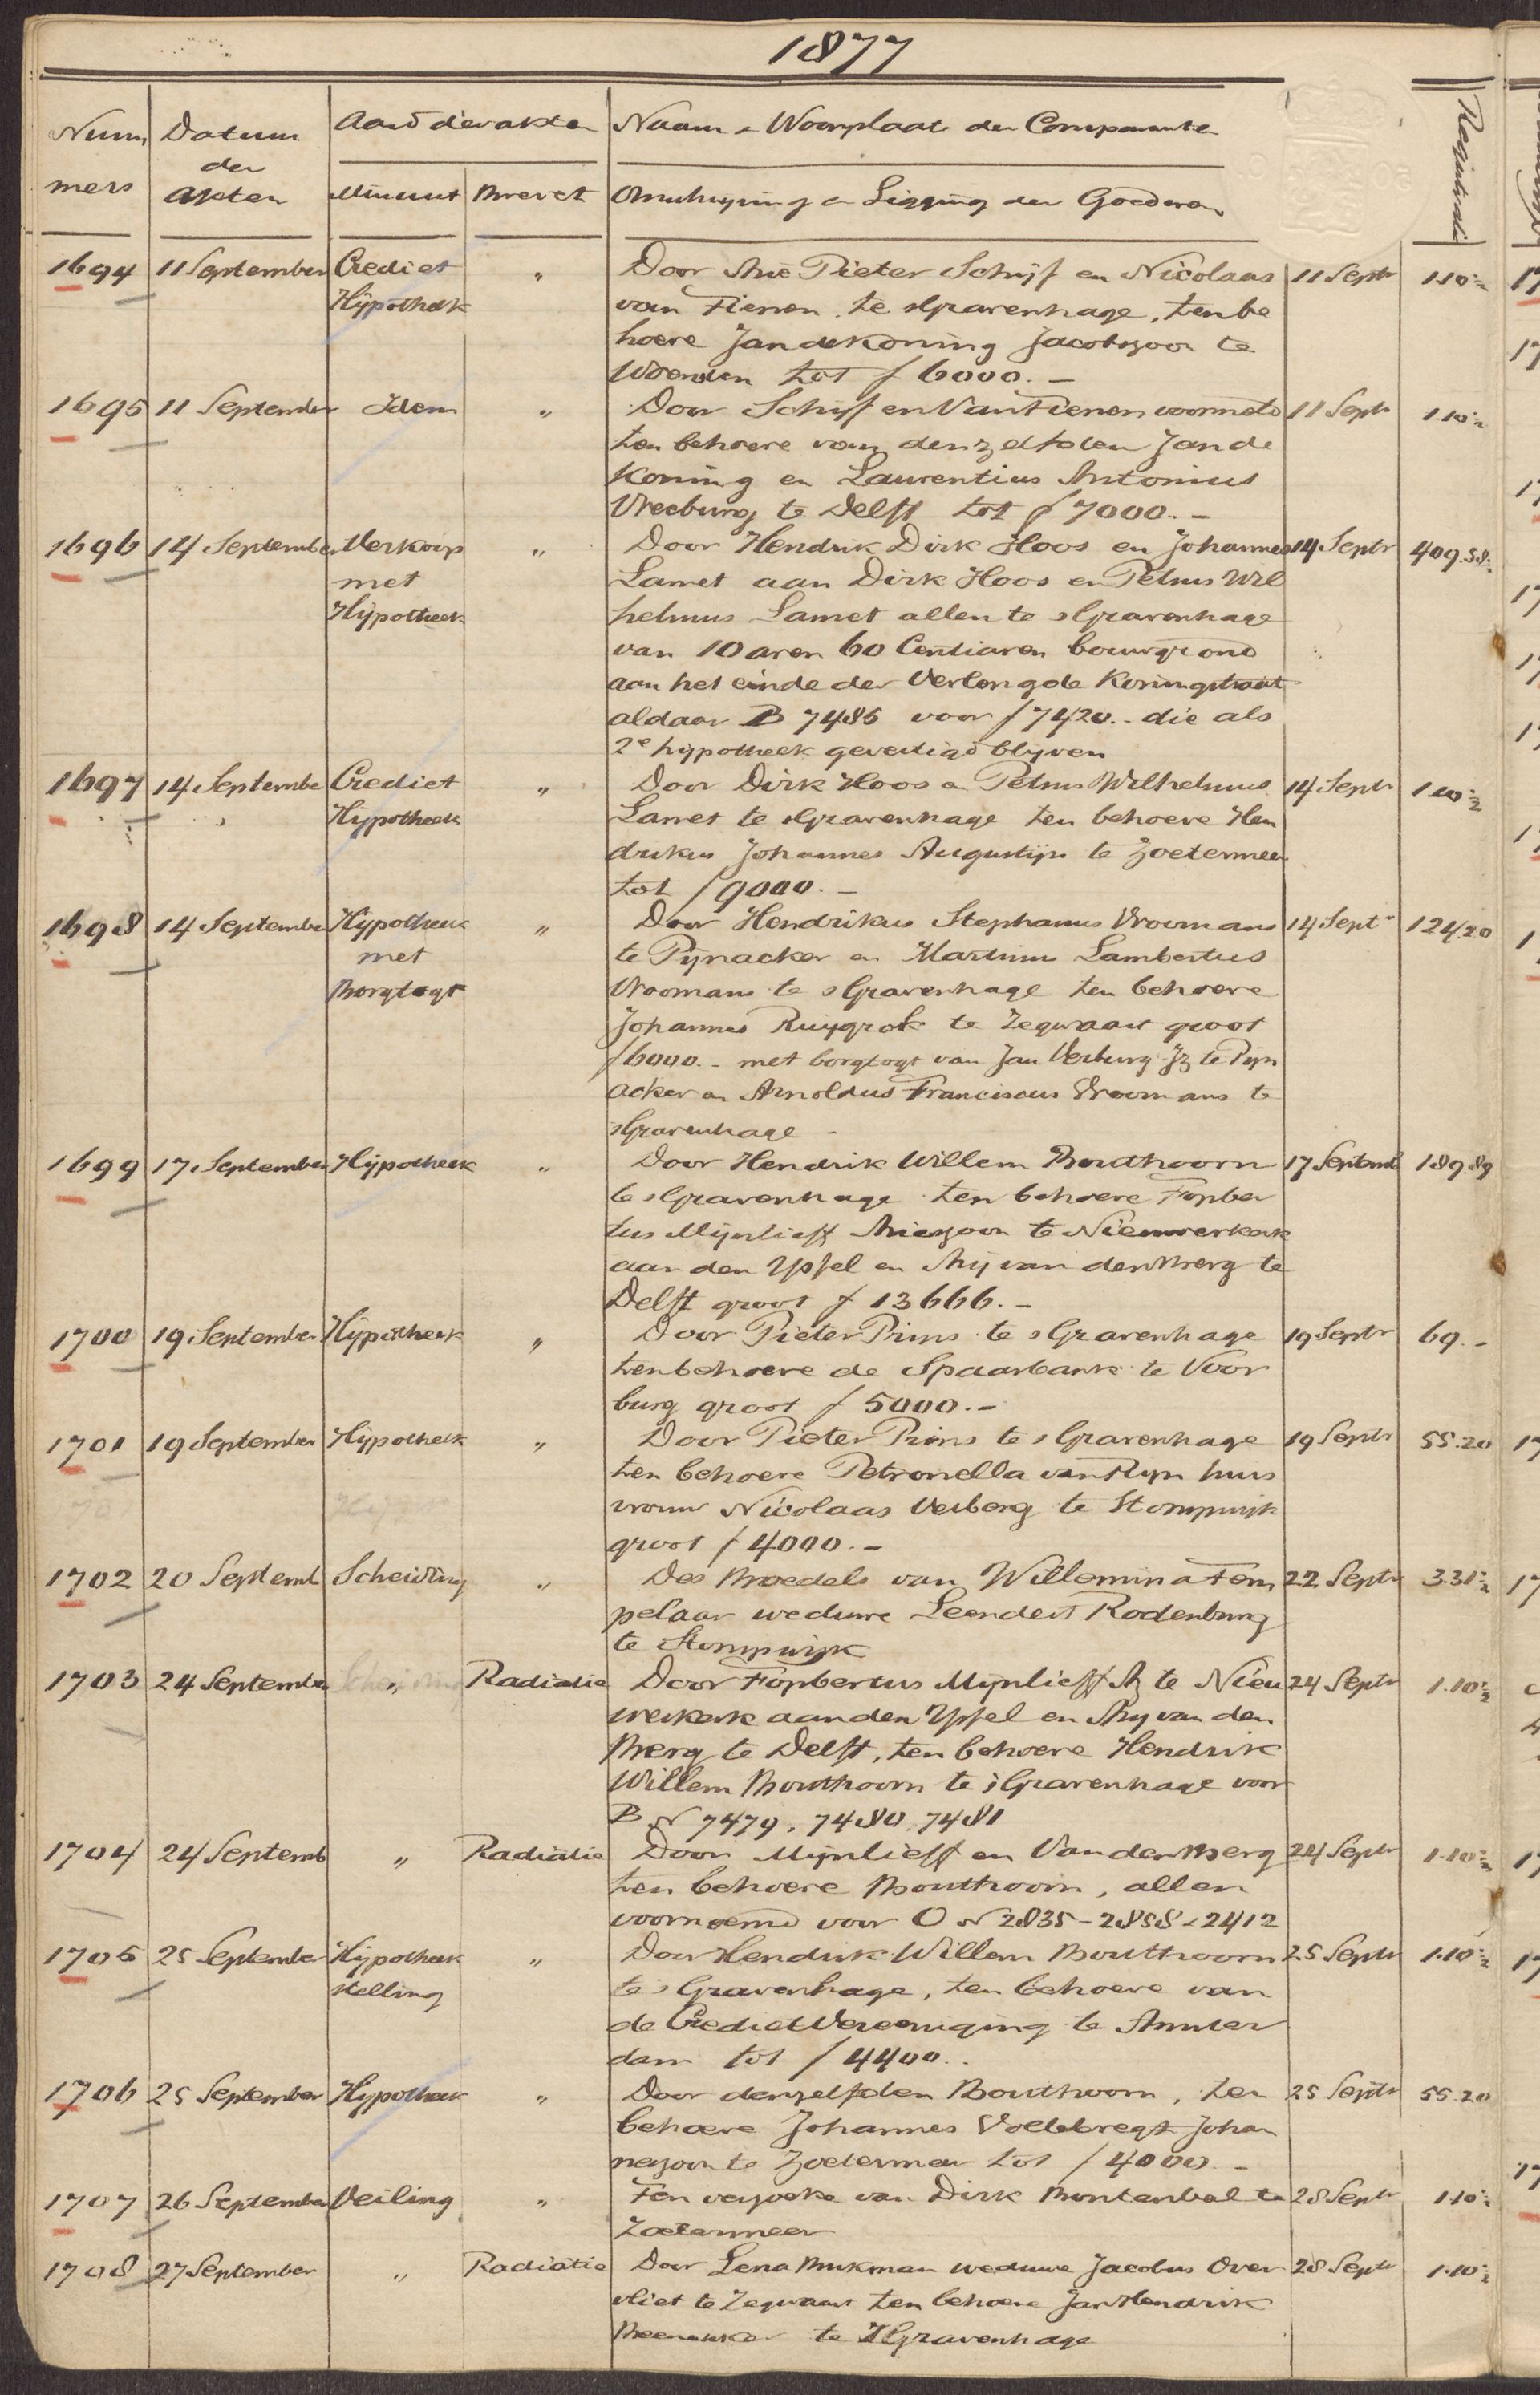 1877
Num
mers
Datum
der
Akten
Aard der akten
Minuut
Brevet
Naam & Woonplaats der Comparanten
Omschrijving en Ligging der Goederen
Registratie
1694 11 September Crediet " Door Arie Pieter Schijf en Nicolaas 11 Septr 1.10½
Hypotheek van Tienen te sGravenhage, ten be
hoeve Jan de Koning Jacobszoon te
Woerden tot f 6000.-
1695 11 September Idem " Door Schijf en Van Tienen voormeld 11 Septr 1.10½
ten behoeve van denzelfden Jan de
Koning en Laurentius Antonius
Vreeburg te Delft tot f 7000.-
1696 14 September Verkoop " Door Hendrik Dirk Hoos en Johannes 14 Septr 409.58½
met Lamet aan Dirk Hoos en Petrus Wil
Hypotheek helmus Lamet allen te sGravenhage
van 10 aren 60 Centiaren bouwgrond
aan het einde der Verlengde Koningstraat
aldaar B 7485 voor f 7420.- die als
2e hypotheek gevestigd blyven
1697 14 September Crediet " Door Dirk Hoos en Petrus Wilhelmus 14 Septr 1.10½
Hypotheek Lamet te sGravenhage ten behoeve Hen
drikus Johannes Augustijn te Zoetermeer
tot f 9000.-
1698 14 September Hypotheek " Door Hendrikus Stephanus Vroomans 14 Septr 124.20
met te Pijnacker en Martinus Lambertus
Borgtogt Vroomans te sGravenhage ten behoeve
Johannes Ruijgrok te Zegwaart groot
f 6000.- met borgtogt van Jan Verburg Jz te Pijn
acker en Arnoldus Franciscus Vroomans te
sGravenhage -
1699 17 September Hypotheek " Door Hendrik Willem Bouthoorn 17 Septemb 189.89
te sGravenhage ten behoeve Fopber
tus Mijnlieff Arieszoon te Nieuwerkerk
aan den Yssel en Arij van den Berg te
Delft groot f 13666.-
1700 19 September Hypotheek " Door Pieter Prins te sGravenhage 19 Septr 69.-
ten behoeve de Spaarbank te Voor
burg groot f 5000.-
1701 19 September Hypotheek " Door Pieter Prins te sGravenhage 19 Septr 55.20
ten behoeve Petronella van Rijn huis
vrouw Nicolaas Verberg te Stompwijk
groot f 4000.-
1702 20 Septemb Scheiding " Des Boedels van Willemina Tem 22 Septr 3.31½
pelaar weduwe Leendert Rodenburg
te Stompwijk
1703 24 September " Radiatie Door Fopbertus Mijnlieff Az te Nieu 24 Septr 1.10½
werkerk aan den Yssel en Arij van den
Berg te Delft, ten behoeve Hendrik
Willem Bouthoorn te sGravenhage voor
B N 7479, 7480, 7481
1704 24 Septemb " Radiatie Door Mijnlieff en Van den Berg 24 Septr 1.10½
ten behoeve Bouthoorn, allen
voornoemd voor O N 2835 - 2858 & 2412
1705 25 September Hypotheek " Door Hendrik Willem Bouthoorn 25 Septr 1.10½
stelling te sGravenhage, ten behoeve van
de Crediet Vereeniging te Amster
dam tot f 4400..
1706 25 September Hypotheek " Door denzelfden Bouthoorn, ten 25 Septr 55.20
behoeve Johannes Vollebregt Johan
neszoon te Zoetermeer tot f 4000.-
1707 26 September Veiling " Ten verzoeke van Dirk Bontenbal te 28 Septr 1.10½
Zoetermeer
1708 27 September " Radiatie Door Lena Brukman weduwe Jacobus Over 28 Septr 1.10½
vliet te Zegwaart ten behoeve Jan Hendrik
te sGravenhage